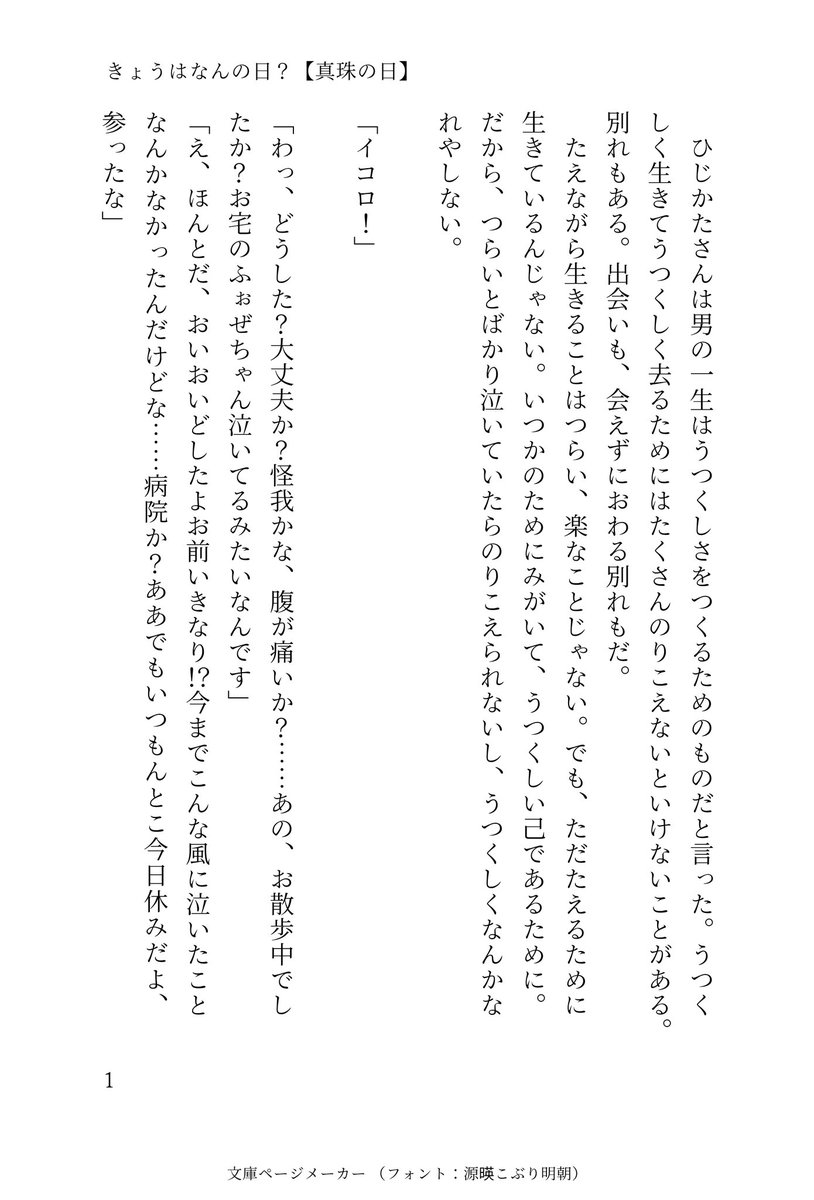 きょうはなんの日？【真珠の日】
　ひじかたさんは男の一生はうつくしさをつくるためのものだと言った。うつく
しく生きてうつくしく去るためにはたくさんのりこえないといけないことがある。
別れもある。出会いも、会えずにおわる別れもだ。
　たえながら生きることはつらい、楽なことじゃない。でも、ただたえるために
生きているんじゃない。いつかのためにみがいて、うつくしい己であるために。
だから、つらいとばかり泣いていたらのりこえられないし、うつくしくなんかな
れやしない。
「イコロ！」
「わっ、どうした？大丈夫か？怪我かな、腹が痛いか？……あの、お散歩中でし
たか？お宅のふぉぜちゃん泣いてるみたいなんです」
「え、ほんとだ、おいおいどしたよお前いきなり!?今までこんな風に泣いたこと
なんかなかったんだけどな……病院か？ああでもいつもんとこ今日休みだよ、
参ったな」
1
文庫ページメーカー（フォント：源暎こぶり明朝）